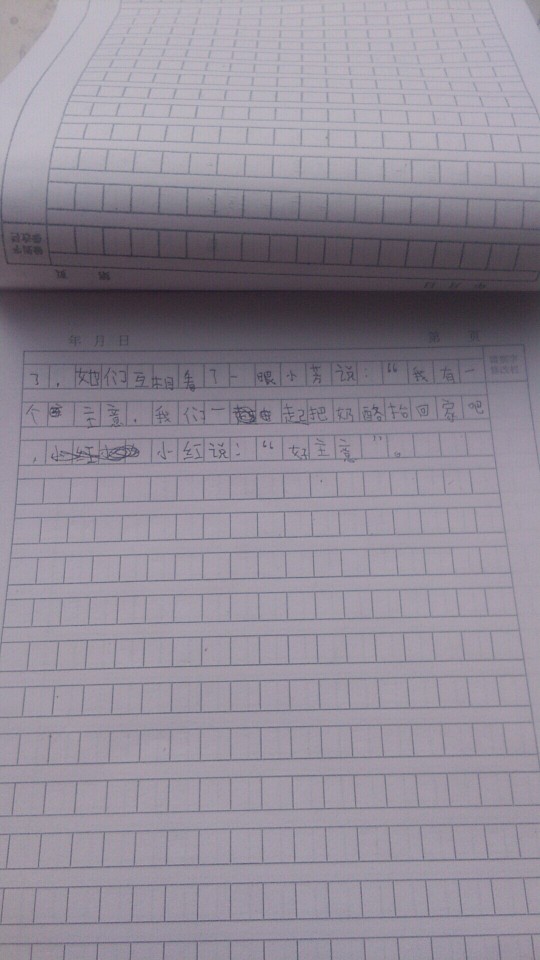 年 月 日 第 页
了，她们互相看了一眼小芳说：“我有一
个主意，我们一起把奶酪抬回家吧
，小红说：“好主意”。